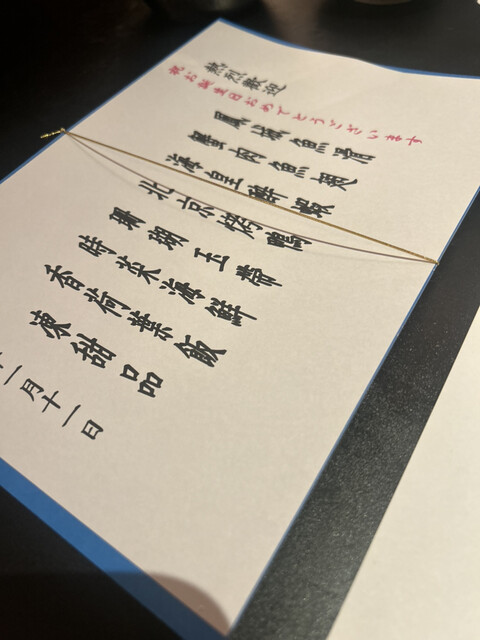 熱烈歡迎
祝お誕生日おめでとうございます
鳳城魚滑
蟹肉魚翅
海皇酥蝦
北京烤鴨
珊瑚玉帶
時菜海鮮
香荷葉飯
凍甜品
一月十一日